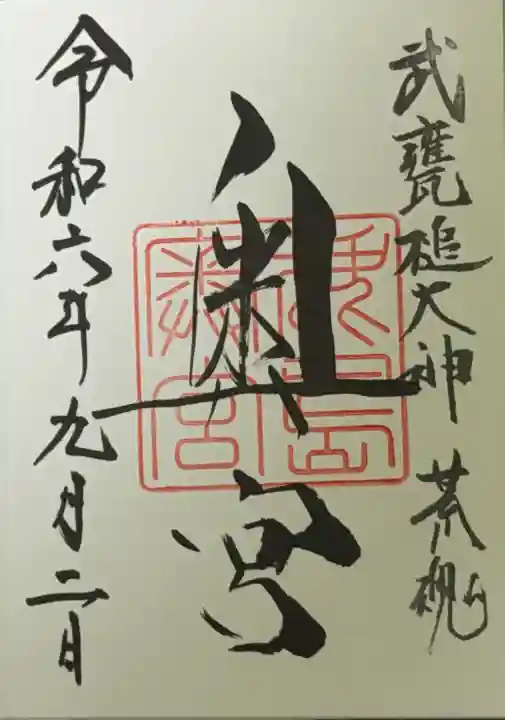 武甕槌大神 荒魂
奥宮
令和六年九月二日